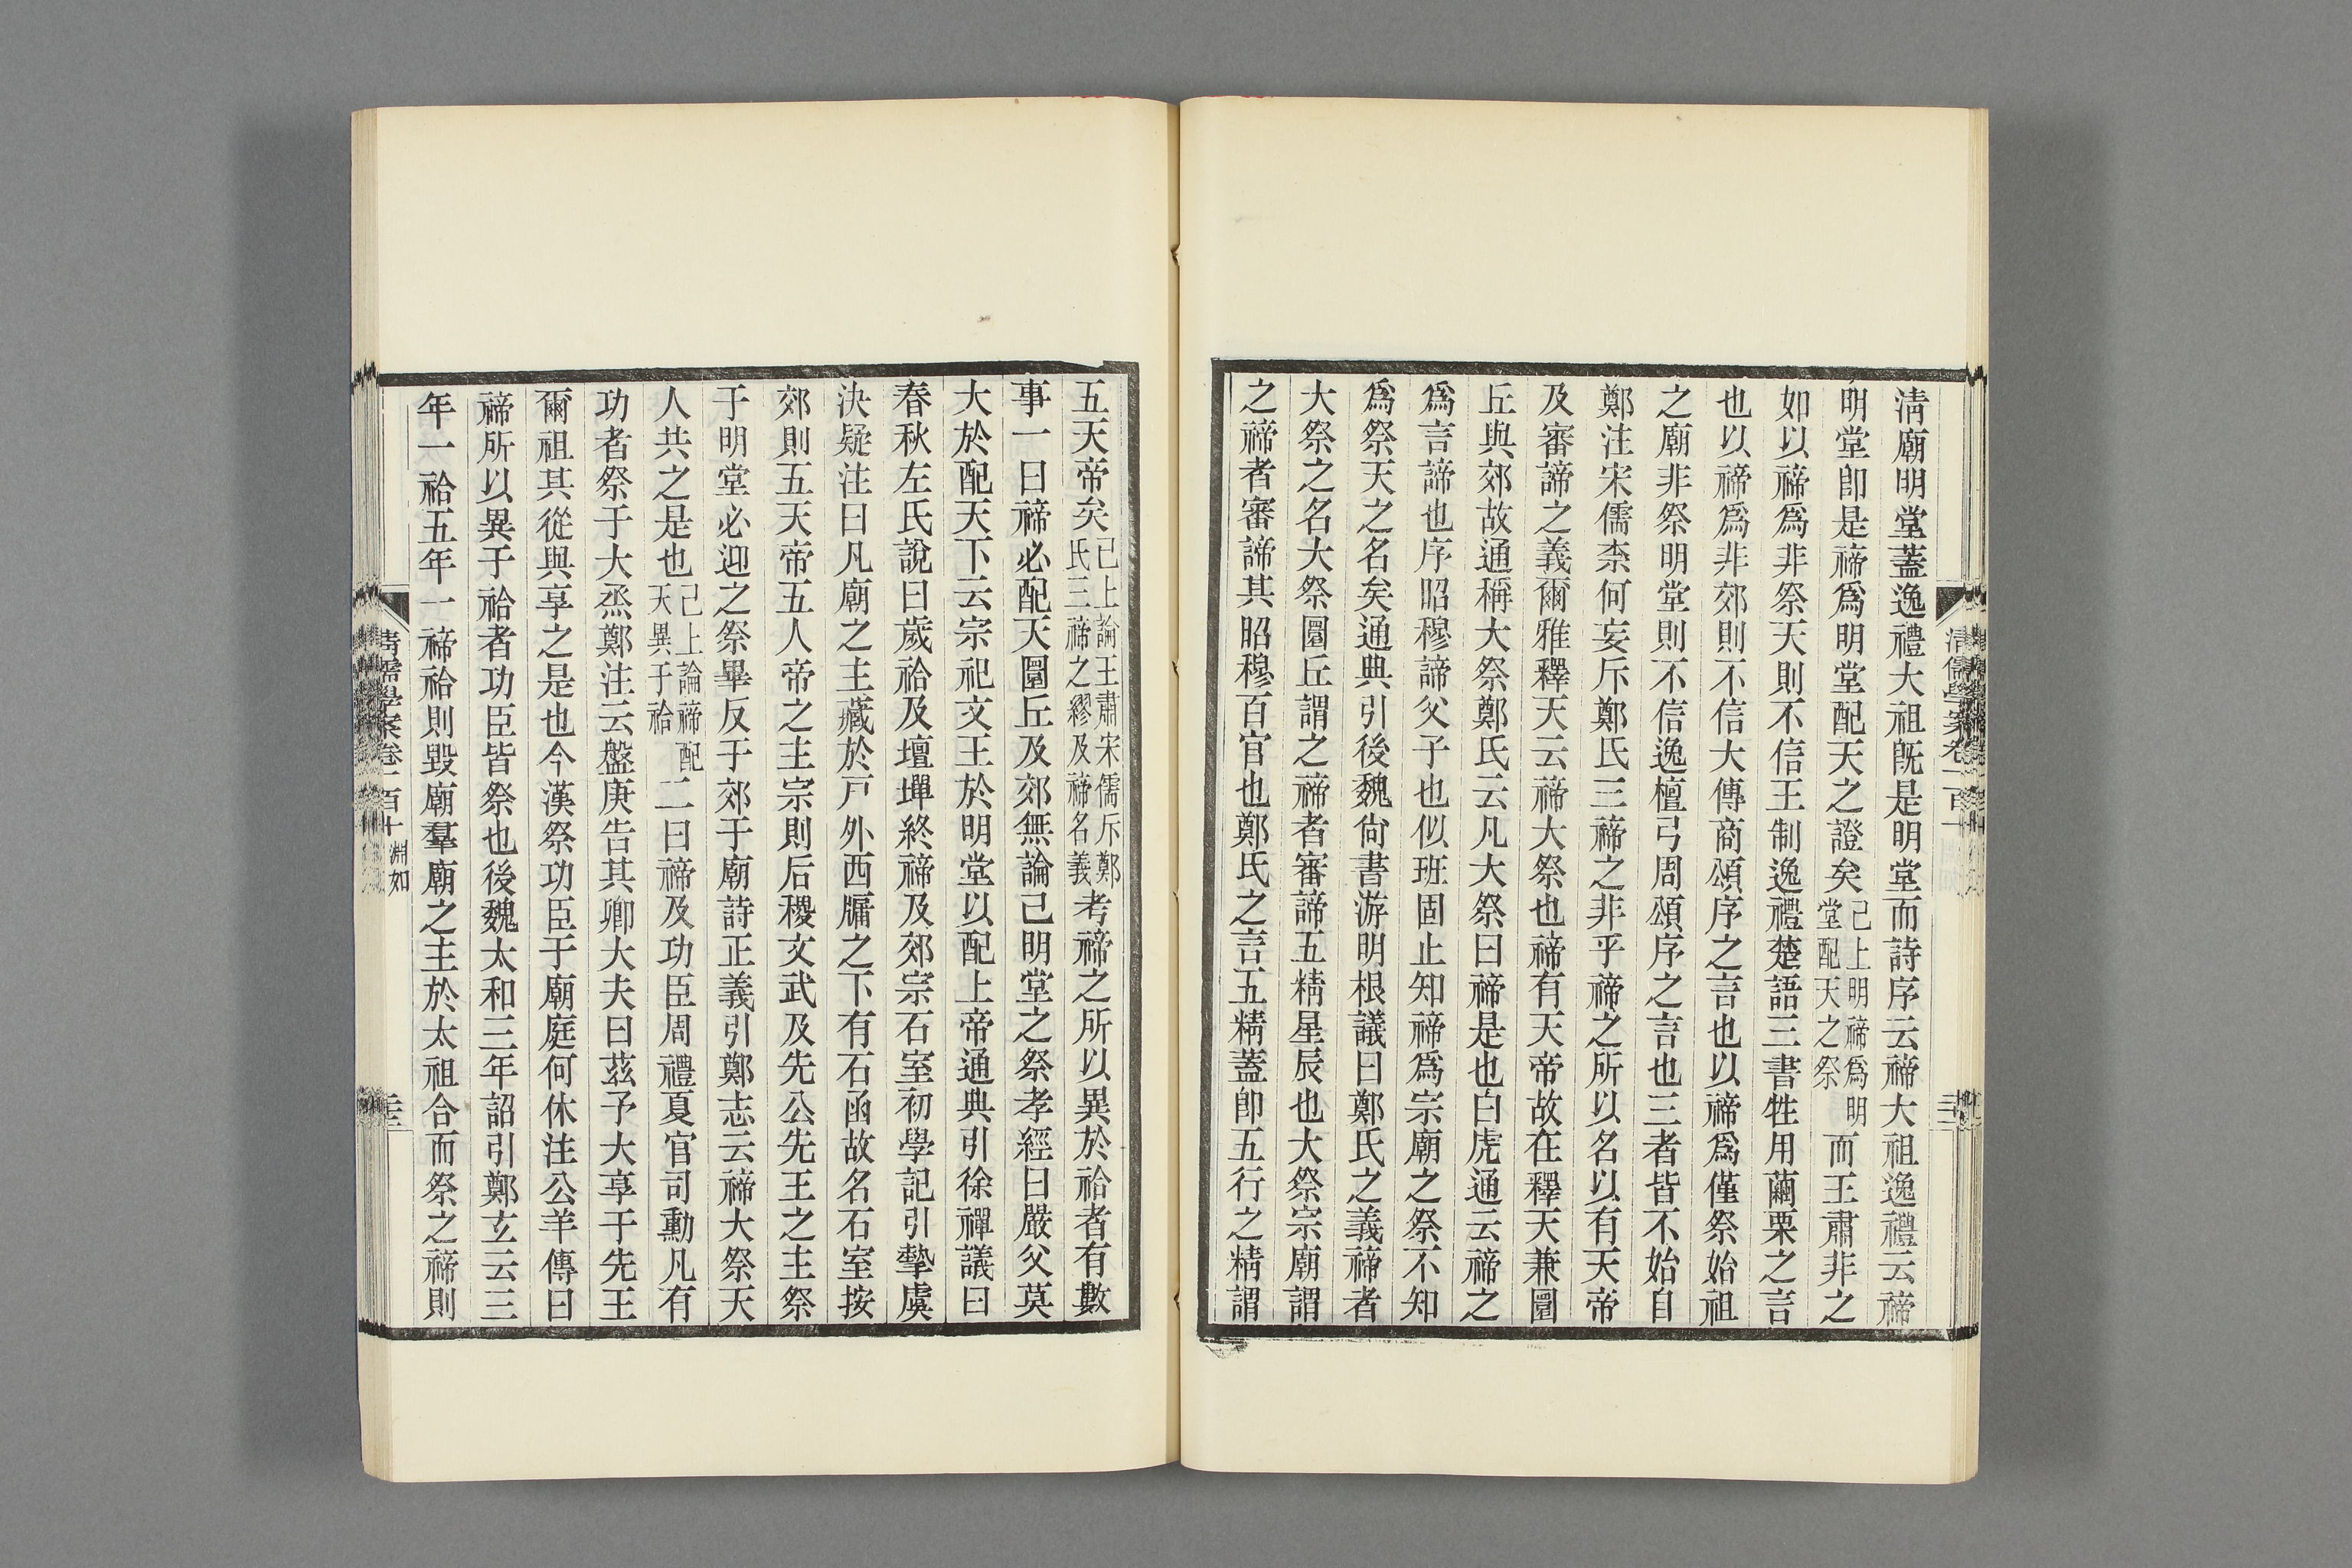 清廟明堂蓋逸禮大祖既是明堂而詩序云禘大祖逸禮云禘
明堂卽是禘爲明堂配天之證矣己上明禘爲明堂配天之祭而王肅非之
如以禘爲非祭天則不信王制逸禮楚語三書牲用繭栗之言
也以禘爲非郊則不信大傳商頌序之言也以禘爲僅祭始祖
之廟非祭明堂則不信逸檀弓周頌序之言也三者皆不始自
鄭注宋儒柰何妄斥鄭氏三禘之非乎禘之所以名以有天帝
及審諦之義爾雅釋天云禘大祭也禘有天帝故在釋天兼圜
丘與郊故通稱大祭鄭氏云凡大祭曰禘是也白虎通云禘之
爲言諦也序昭穆諦父子也似班固止知禘爲宗廟之祭不知
爲祭天之名矣通典引後魏尙書游明根議曰鄭氏之義禘者
大祭之名大祭圜丘謂之禘者審諦五精星辰也大祭宗廟謂
之禘者審諦其昭穆百官也鄭氏之言五精蓋卽五行之精謂
清儒學案卷一百十
五天帝矣己上論王肅宋儒斥鄭氏三禘之繆及禘名義考禘之所以異於祫者有數
事一曰禘必配天圜丘及郊無論己明堂之祭孝經曰嚴父莫
大於配天下云宗祀文王於明堂以配上帝通典引徐禪議曰
春秋左氏說曰歲祫及壇墠終禘及郊宗石室初學記引摯虞
決疑注曰凡廟之主藏於戸外西牖之下有石函故名石室按
郊則五天帝五人帝之主宗則后稷文武及先公先王之主祭
于明堂必迎之祭畢反于郊于廟詩正義引鄭志云禘大祭天
人共之是也己上論禘配天異于祫二曰禘及功臣周禮夏官司勳凡有
功者祭于大烝鄭注云盤庚告其卿大夫曰茲予大享于先王
爾祖其從與享之是也今漢祭功臣于廟庭何休注公羊傳曰
禘所以異于祫者功臣皆祭也後魏太和三年詔引鄭玄云三
年一祫五年一禘祫則毀廟羣廟之主於太祖合而祭之禘則
清儒學案卷一百十 淵如